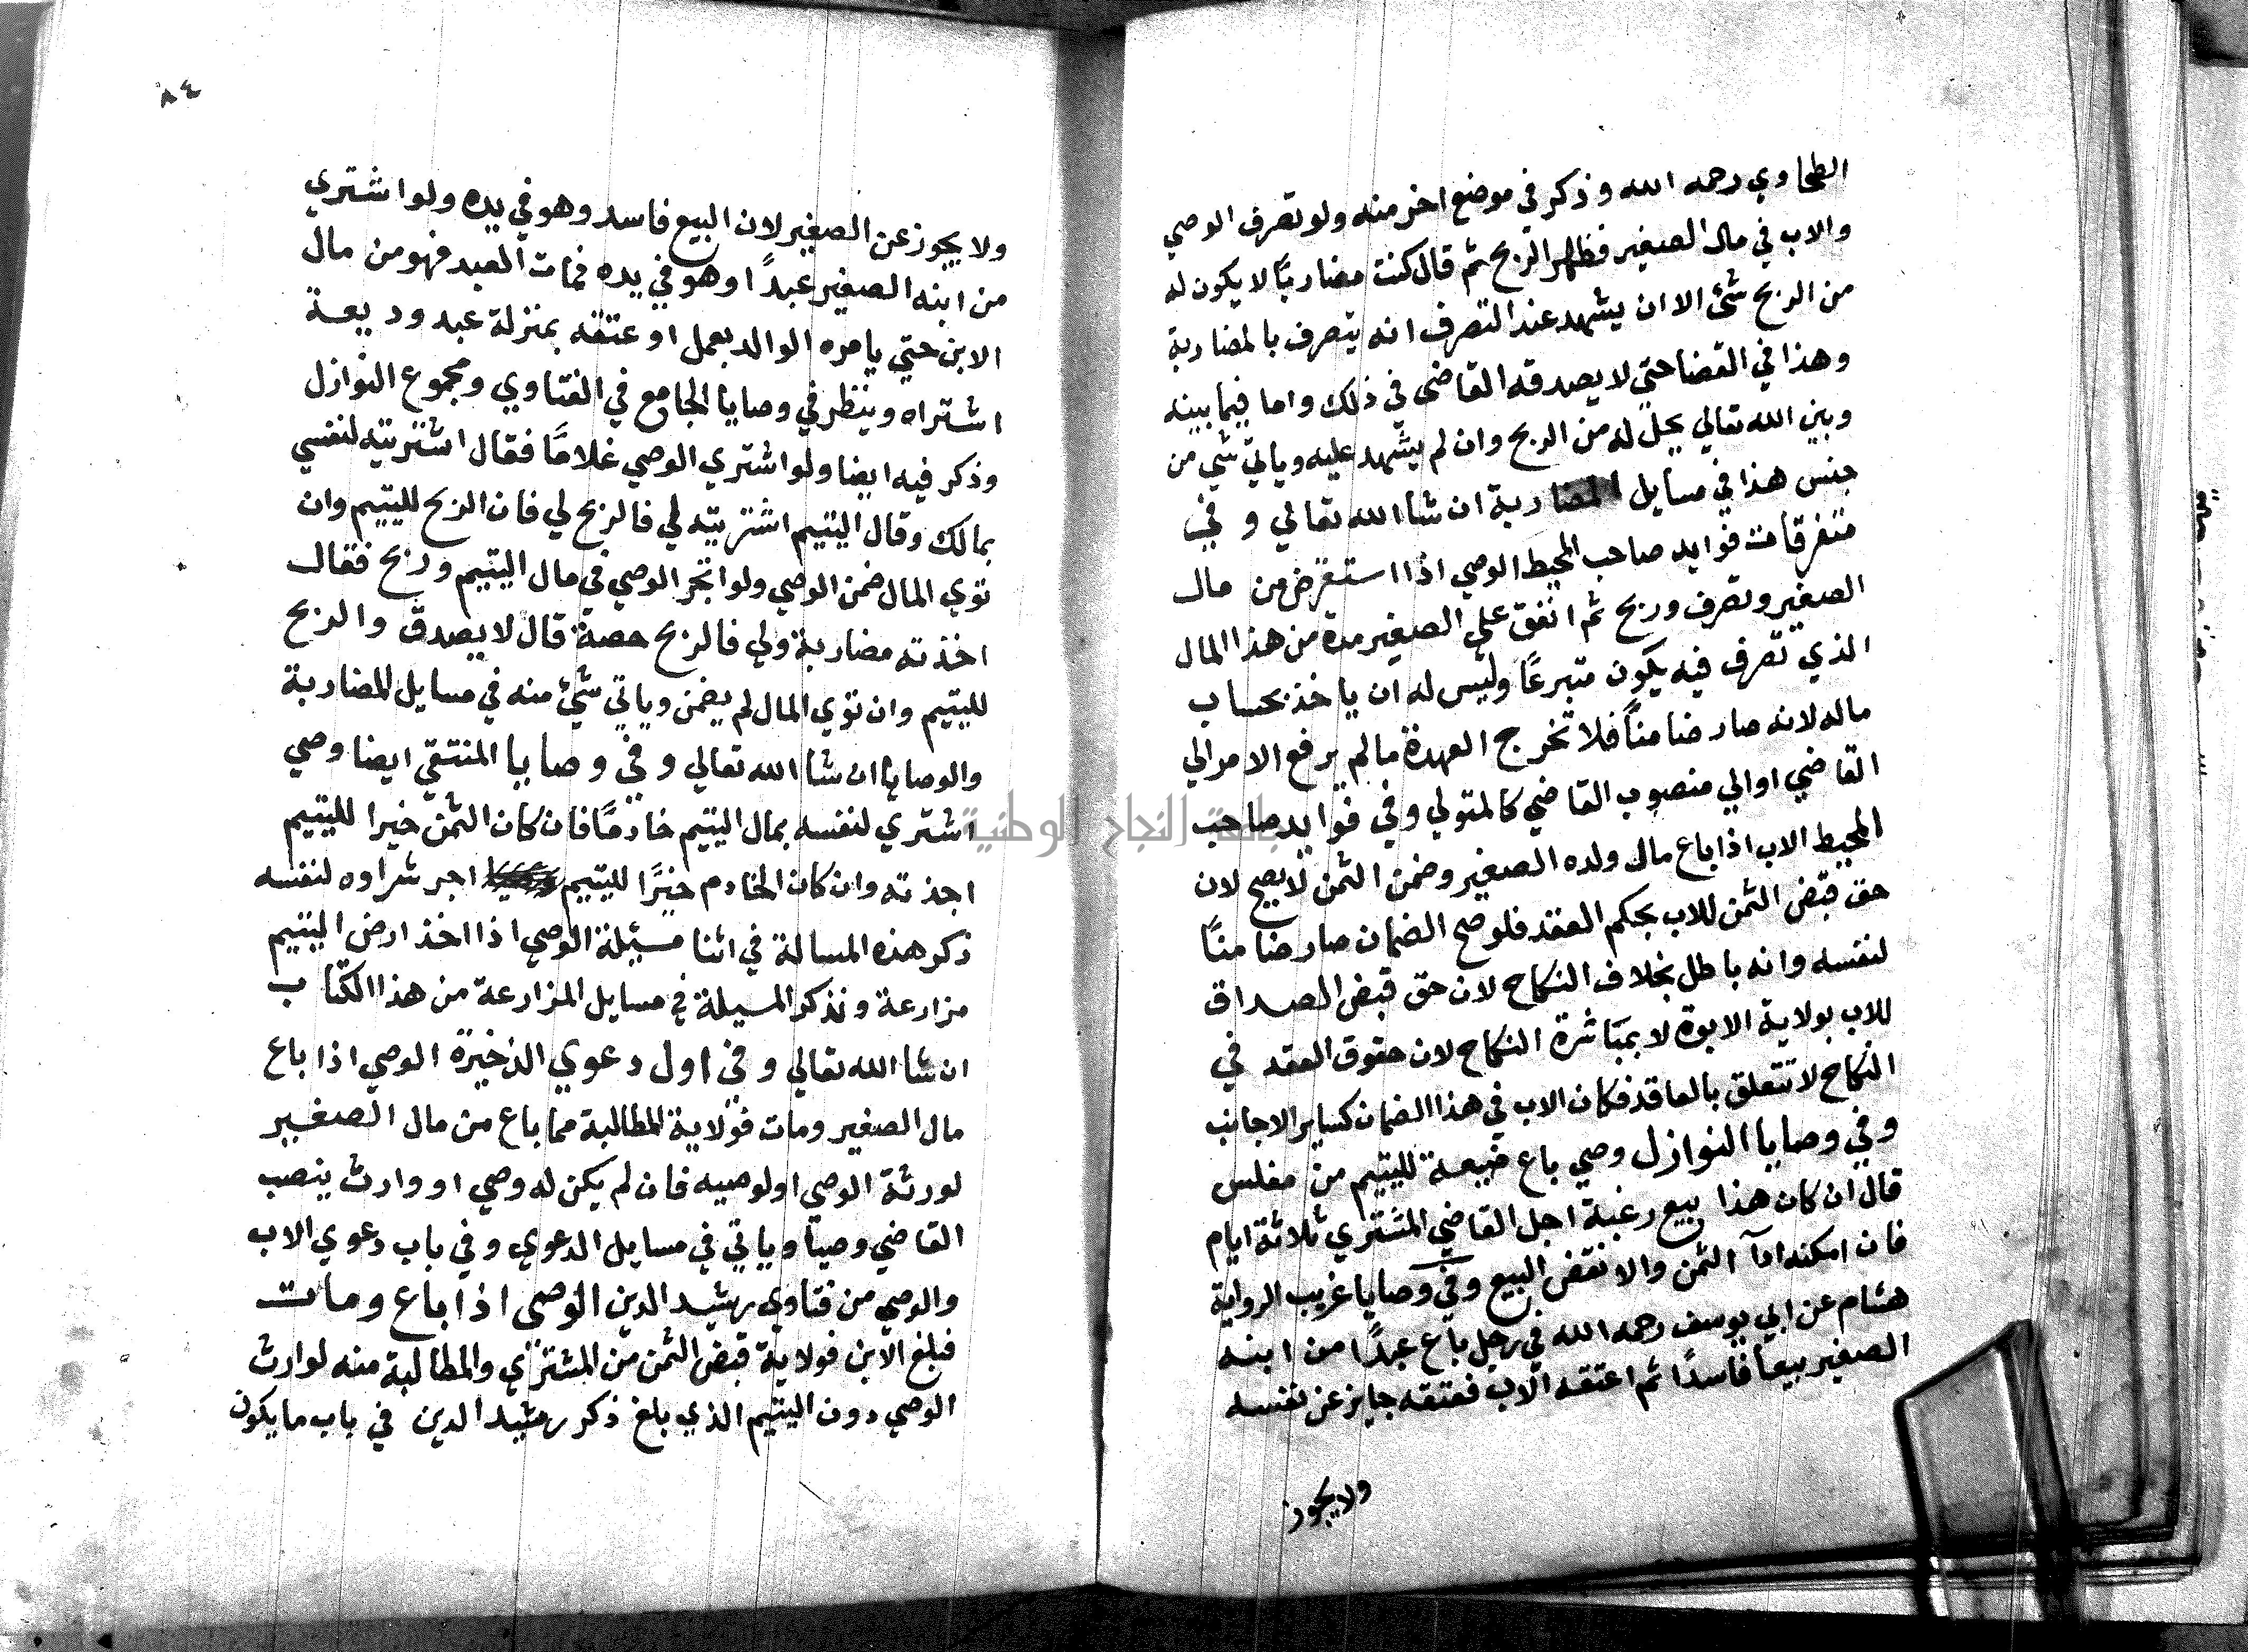 الطحاوي رحمه الله وذكر في موضع اخر منه ولو تصرف الوصي
والاب في مال الصغير فظهر الربح ثم قال كنت مضاربًا لا يكون له
من الربح شئ الا ان يشهد عند التصرف انه يتصرف بالمضاربة
وهذا في القضا حتي لا يصدقه القاضي في ذلك واما فيما بينه
وبين الله تعالي يحل له من الربح وان لم يشهد عليه وياتي شي من
جنس هذا في مسايل المضاربة ان شا الله تعالي وفي
متفرقات فوايد صاحب المحيط الوصي اذا استقرض من مال
الصغير وتصرف وربح ثم انفق علي الصغير مدة من هذا المال
الذي تصرف فيه يكون متبرعًا وليس له ان ياخذ بحساب
ماله لانه صار ضامنًا فلا تخرج العهدة مالم يرفع الامر الي
القاضي او الي منصوب القاضي كالمتولي وفي فوايد صاحب
المحيط الاب اذا باع مال ولده الصغير وضمن الثمن لا يصح لان
حق قبض الثمن للاب بحكم العقد فلو صح الضمان صار ضامنًا
لنفسه وانه باطل بخلاف النكاح لان حق قبض الصداق
للاب بولاية الابوة لا بمباشرة النكاح لان حقوق العقد في
النكاح لا تتعلق بالعاقد فكان الاب في هذا الضمان كساير الاجانب
وفي وصايا النوازل وصي باع ضيعة لليتيم من مفلس
قال ان كان هذا بيع رغبة اجل القاضي المشتري ثلاثة ايام
فان امكنه ادآ الثمن والا نقض البيع وفي وصايا غريب الرواية
هشام عن ابي يوسف رحمه الله في رجل باع عبدًا من ابنه
الصغير بيعا فاسدًا ثم اعتقه الاب فعتقه جايز عن نفسه
ولا يجوز
٨٤
ولا يجوز عن الصغير لان البيع فاسد وهو في يده ولو اشتري
من ابنه الصغير عبدًا وهو في يده فمات العبد فهو من مال
الابن حتي يامره الوالد بعمل او عتقه بمنزلة عبد وديعة
اشتراه وينظر في وصايا الجامع في الفتاوي ومجموع النوازل
وذكر فيه ايضا ولو اشتري الوصي غلامًا فقال اشتريته لنفسي
بمالك وقال اليتيم اشتريته لي فالربح لي فان الربح لليتيم وان
توي المال ضمن الوصي ولو اتجر الوصي في مال اليتيم وربح فقال
اخذته مضاربة ولي فالربح حصة قال لا يصدق والربح
لليتيم وان توي المال لم يضمن وياتي شئ منه في مسايل المضاربة
والوصايا ان شا الله تعالي وفي وصايا المنتقي ايضا وصي
اشتري لنفسه بمال اليتيم خادمًا فان كان الثمن خيرا لليتيم
اجزته وان كان الخادم خيرًا لليتيم اجر شراوه لنفسه
ذكر هذه المسالة في اثنا مسئلة الوصي اذا اخذ ارض اليتيم
مزارعة ونذكر المسيلة في مسايل المزارعة من هذا الكتاب
ان شا الله تعالي وفي اول دعوي الذخيرة الوصي اذا باع
مال الصغير ومات فولاية المطالبة مما باع من مال الصغير
لورثة الوصي او لوصيه فان لم يكن له وصي او وارث ينصب
القاضي وصيا وياتي في مسايل الدعوي وفي باب دعوي الاب
والوصي من فتاوي رشيد الدين الوصي اذا باع ومات
فبلغ الابن فولاية قبض الثمن من المشتري والمطالبة منه لوارث
الوصي دون اليتيم الذي بلغ ذكر رشيد الدين في باب ما يكون
جامعة النجاح الوطنية